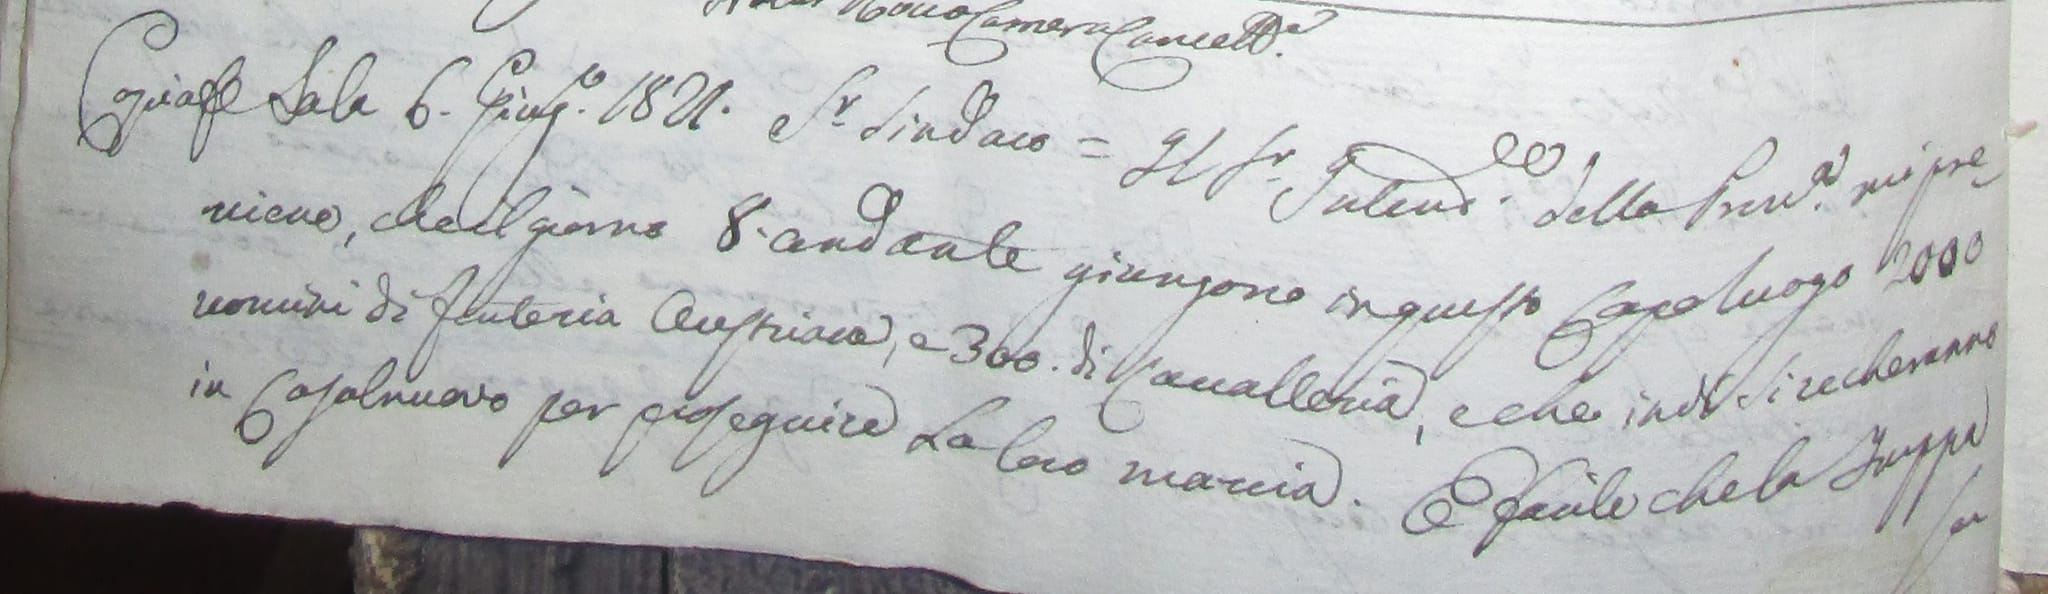 Rocco Camera Cancell.e
Copia = Sala 6. Giug.o 1821. S.r Sindaco = Il S.r Intend.e della Prov.a mi pre_
viene, che il giorno 8. andante giungono in questo Capoluogo 2000
uomini di fanteria Austriaca, e 300. di Cavalleria, e che indi si recheranno
in Casalnuovo per proseguire la loro marcia. È facile che la Truppa